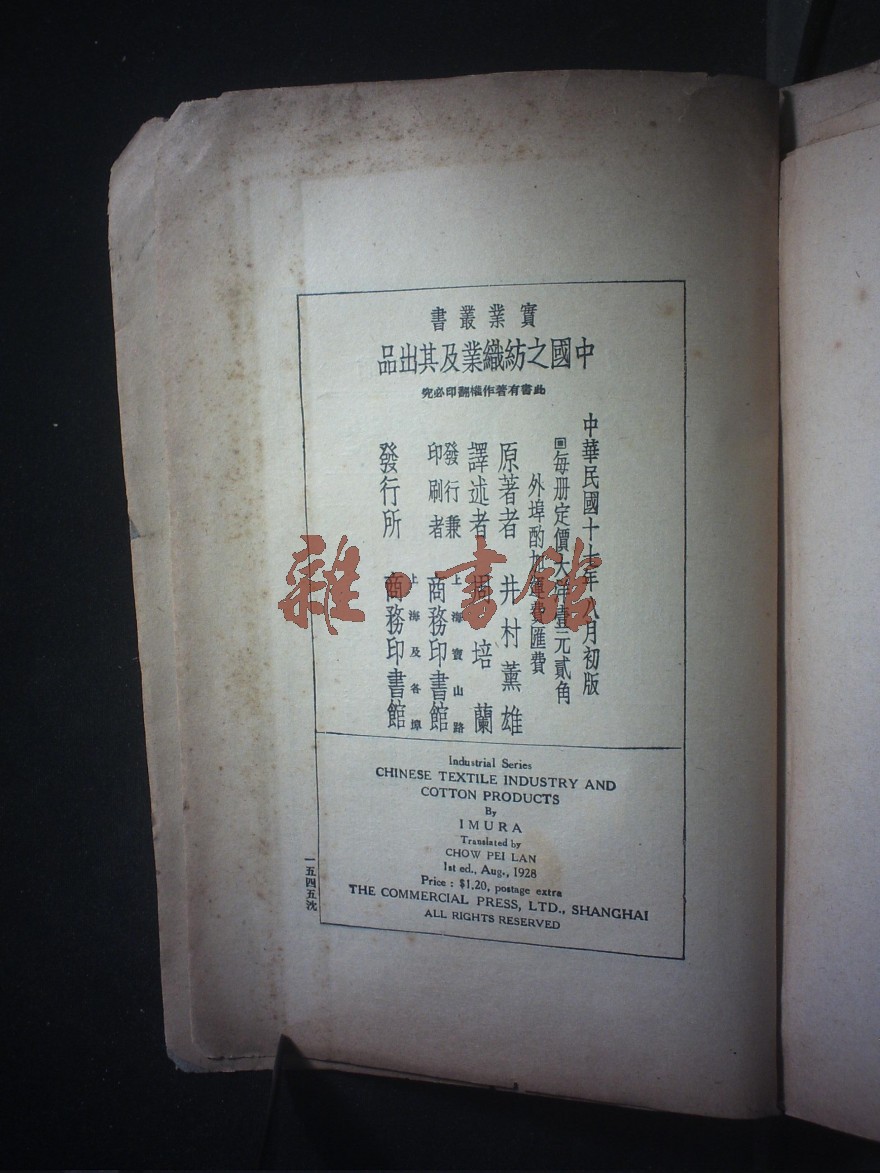 實業叢書
中國之紡織業及其出品
此書有著作權翻印必究
中華民國十七年八月初版
回每册定價大洋壹元貳角
外埠酌加運費匯費
原著者 井村薰雄
譯述者 周培蘭
發行兼印刷者 上海寶山路 商務印書館
發行所 上海及各埠 商務印書館
Industrial Series
CHINESE TEXTILE INDUSTRY AND
COTTON PRODUCTS
By
IMURA
Translated by
CHOW PEI LAN
1st ed., Aug., 1928
Price : $1.20, postage extra
THE COMMERCIAL PRESS, LTD., SHANGHAI
ALL RIGHTS RESERVED
一五四五沈
雜·書館